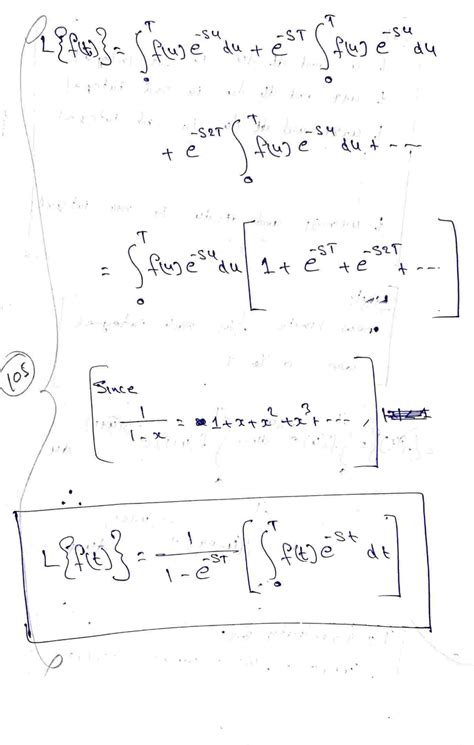 L{f(t)} = ∫₀ᵀ f(u) e^{-su} du + e^{-sT} ∫₀ᵀ f(u) e^{-su} du
+ e^{-s2T} ∫₀ᵀ f(u) e^{-su} du + ...
= ∫₀ᵀ f(u) e^{-su} du [1 + e^{-sT} + e^{-s2T} + ...]
105
[Since
1/(1-x) = 1 + x + x² + x³ + ... ,]
∴
L{f(t)} = 1/(1 - e^{-sT}) [∫₀ᵀ f(t) e^{-st} dt]